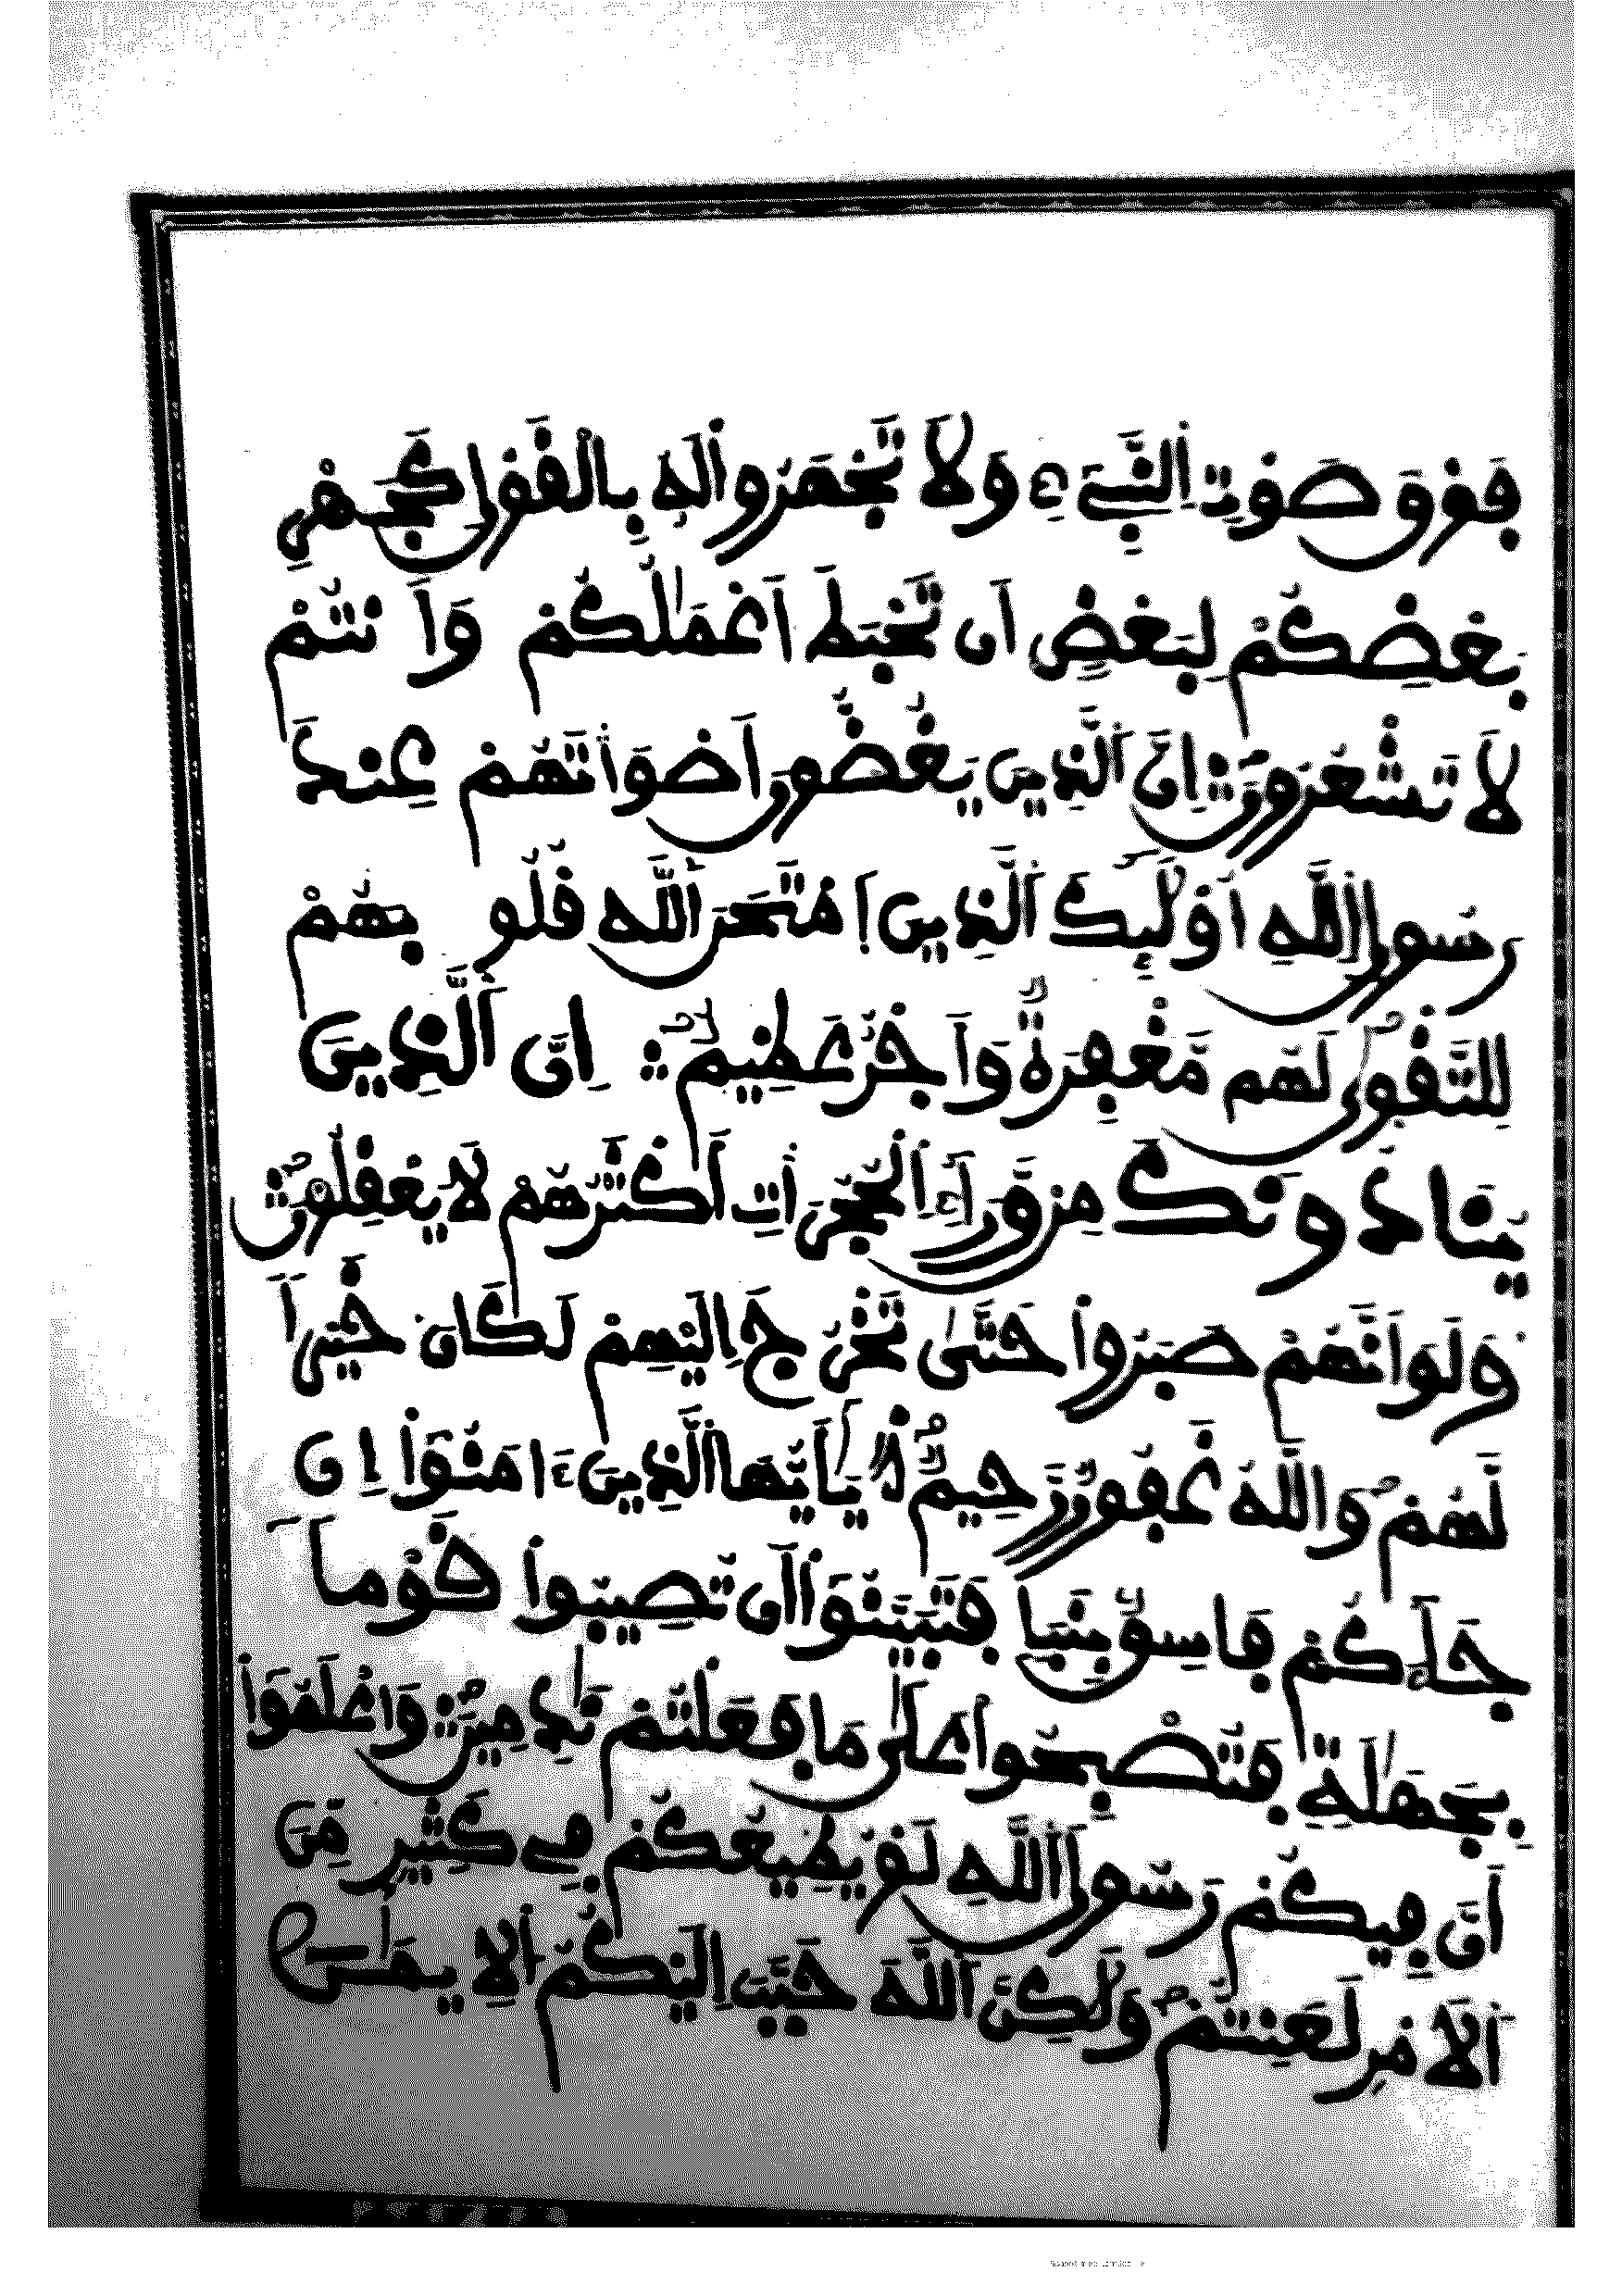 فَوْقَ صَوْتِ اِ۬لنَّبِےٓءِ وَلَا تَجْهَرُواْ لَهُۥ بِالْقَوْلِ كَجَهْرِ
بَعْضِكُمْ لِبَعْضٍ اَن تَحْبَطَ أَعْمَٰلُكُمْ وَأَنتُمْ
لَا تَشْعُرُونَ إِنَّ اَ۬لذِينَ يَغُضُّونَ أَصْوَٰتَهُمْ عِندَ
رَسُولِ اِ۬للَّهِ أُوْلَٰٓئِكَ اَ۬لذِينَ اَ۪مْتَحَنَ اَ۬للَّهُ قُلُوبَهُمْ
لِلتَّقْو۪يٰ لَهُم مَّغْفِرَةٞ وَأَجْرٌ عَظِيمٌ إِنَّ اَ۬لذِينَ
يُنَادُونَكَ مِنْ وَّرَآءِ اِ۬لْحُجُرَٰتِ أَكْثَرُهُمْ لَا يَعْقِلُونَ
وَلَوَ اَنَّهُمْ صَبَرُواْ حَتَّىٰ تَخْرُجَ إِلَيْهِمْ لَكَانَ خَيْراٗ
لَّهُمْ وَاللَّهُ غَفُورٞ رَّحِيمٞ يَٰٓأَيُّهَا اَ۬لذِينَ ءَامَنُوٓاْ إِن
جَآءَكُمْ فَاسِقُۢ بِنَبَإٖ فَتَبَيَّنُوٓاْ أَن تُصِيبُواْ قَوْماَۢ
بِجَهَٰلَةٖ فَتُصْبِحُواْ عَلَىٰ مَا فَعَلْتُمْ نَٰدِمِينَ وَاعْلَمُوٓاْ
أَنَّ فِيكُمْ رَسُولَ اَ۬للَّهِ لَوْ يُطِيعُكُمْ فِے كَثِيرٖ مِّنَ
اَ۬لَامْرِ لَعَنِتُّمْ وَلَٰكِنَّ اَ۬للَّهَ حَبَّبَ إِلَيْكُمُ اُ۬لِايمَٰنَ